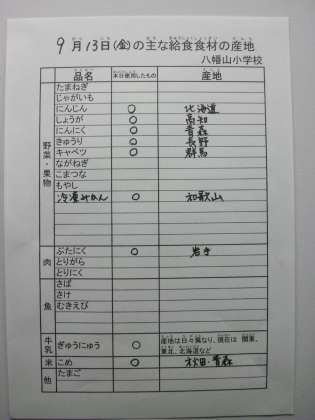 9月13日(金)の主な給食食材の産地
八幡山小学校
品名 本日使用したもの 産地
野菜・果物
たまねぎ
じゃがいも
にんじん ○ 北海道
しょうが ○ 高知
にんにく ○ 青森
きゅうり ○ 長野
キャベツ ○ 群馬
ながねぎ
こまつな
もやし
冷凍みかん ○ 和歌山
肉
ぶたにく ○ 岩手
とりがら
とりにく
魚
さば
さけ
むきえび
牛乳 ぎゅうにゅう ○ 産地は日々異なり、現在は 関東、
東北、北海道など
米 こめ ○ 秋田・青森
他 たまご